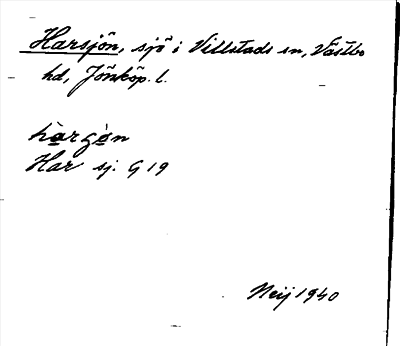 Harsjön, sjö i Villstads sn, Västbo
hd, Jönköp. l.
hàrgòn
Har sj. G 19
Neij 1940